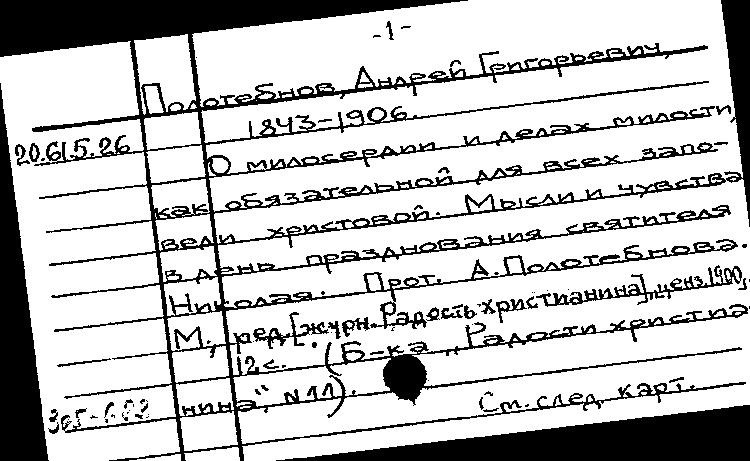 -1-
Полотебнов, Андрей Григорьевич,
1843-1906.
20.61.5.26
О милосердии и делах милости,
как обязательной для всех запо-
веди христовой. Мысли и чувства
в день празднования святителя
Николая. Прот. А.Полотебнова.
М., ред.[журн.Радость христианина], ценз.1900,
12с. (Б-ка „Радости христиа-
нина“, N11).
См.след. карт.